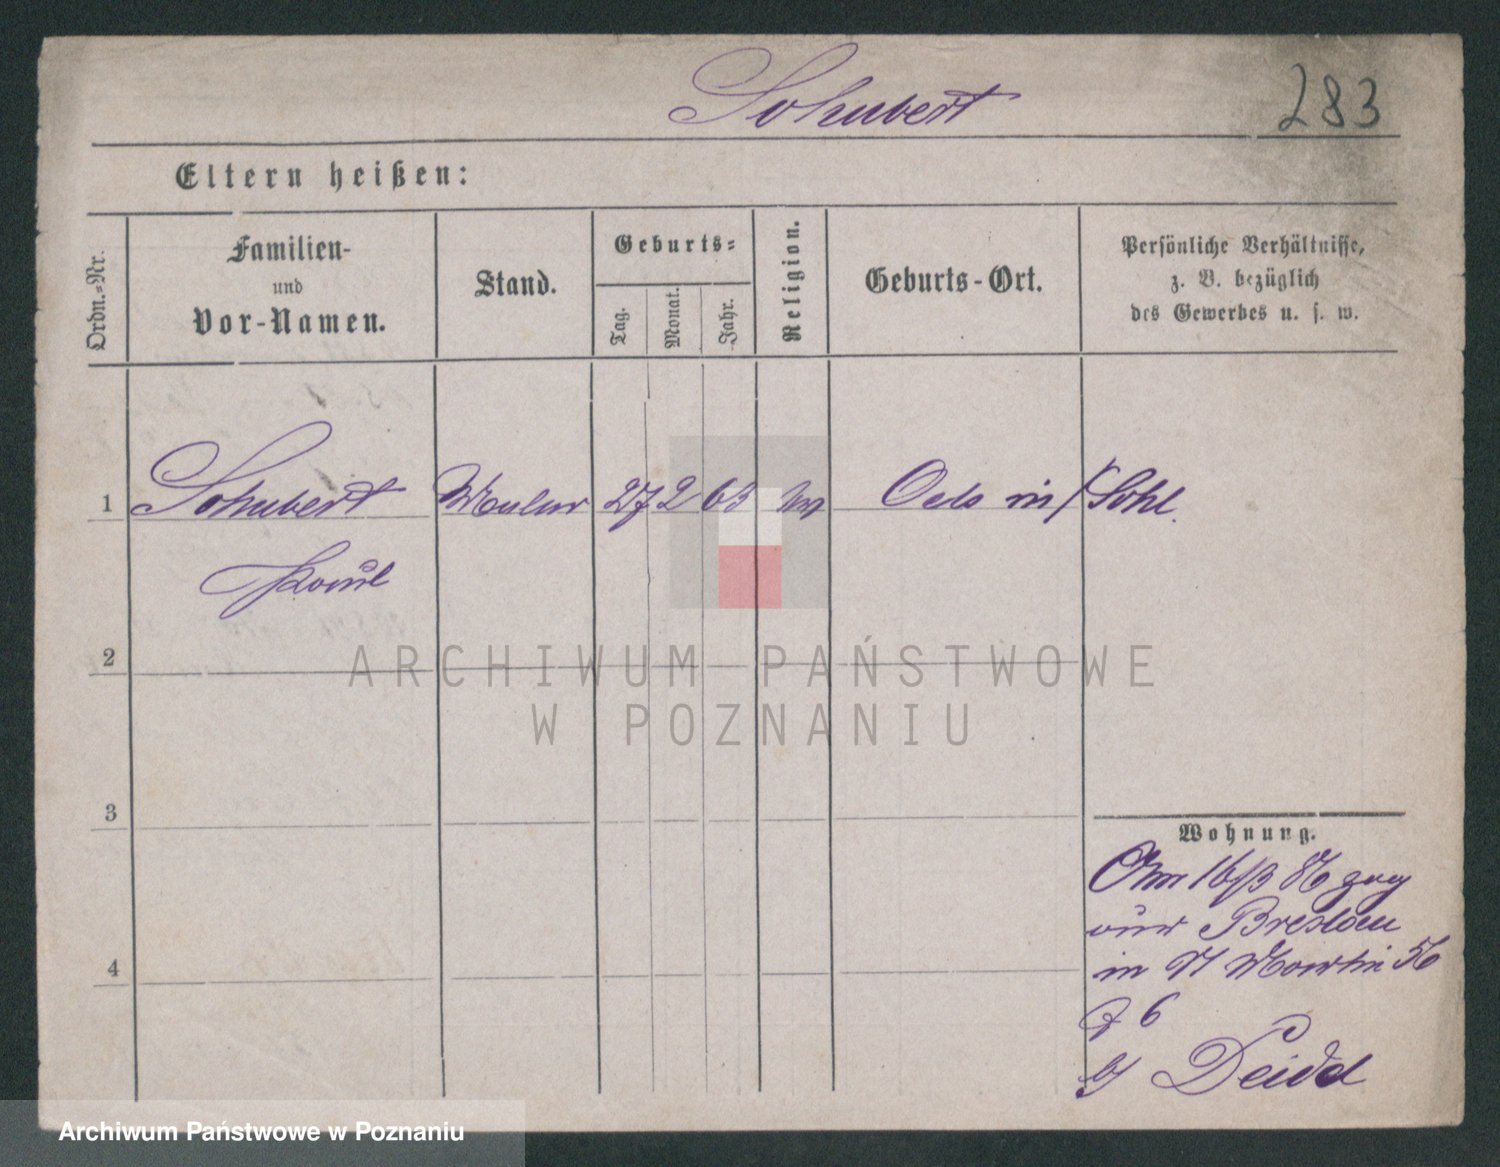 Schubert
283
Eltern heißen:
Ordn.-Nr.
Familien-
und
Vor-Namen.
Stand.
Geburts-
Tag.
Monat.
Jahr.
Religion.
Geburts-Ort.
Persönliche Verhältnisse,
z. B. bezüglich
des Gewerbes u. s. w.
1 Schubert Maler 27 2 65 Oels in/Schl.
Paul
2
3
4
Wohnung.
Am 16/3 86 zog
von Breslau
in St Martin 56
6
Deidel
ARCHIWUM PAŃSTWOWE
W POZNANIU
Archiwum Państwowe w Poznaniu